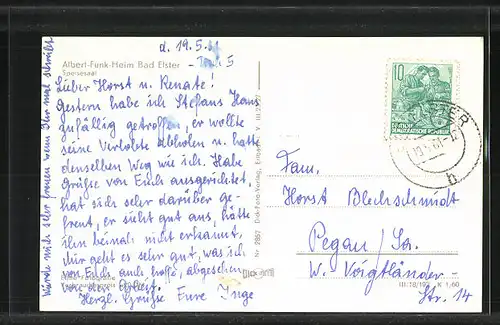 d. 19.5.61
Albert-Funk-Heim Bad Elster
Speisesaal
Lieber Horst u. Renate!
Gestern habe ich Stefans Hans
zufällig getroffen, er wollte
seine Verlobte abholen u. hatte
denselben Weg wie ich. Habe
Grüße von Euch ausgerichtet,
hat sich sehr darüber ge-
freut, er sieht gut aus, hätte
ihn beinah nicht erkannt.
Mir geht es sehr gut, was ich
von Euch auch hoffe, abgesehen
von der Arbeit.
Herzl. Grüße Eure Inge
Würde mich sehr freuen wenn Ihr mal schreibt
10
DEUTSCHE
DEMOKRATISCHE REPUBLIK
b
Fam.
Horst Blechschmidt
Pegau/Sa.
W. Voigtländer-
Str. 14
III/18/197 K 1,60